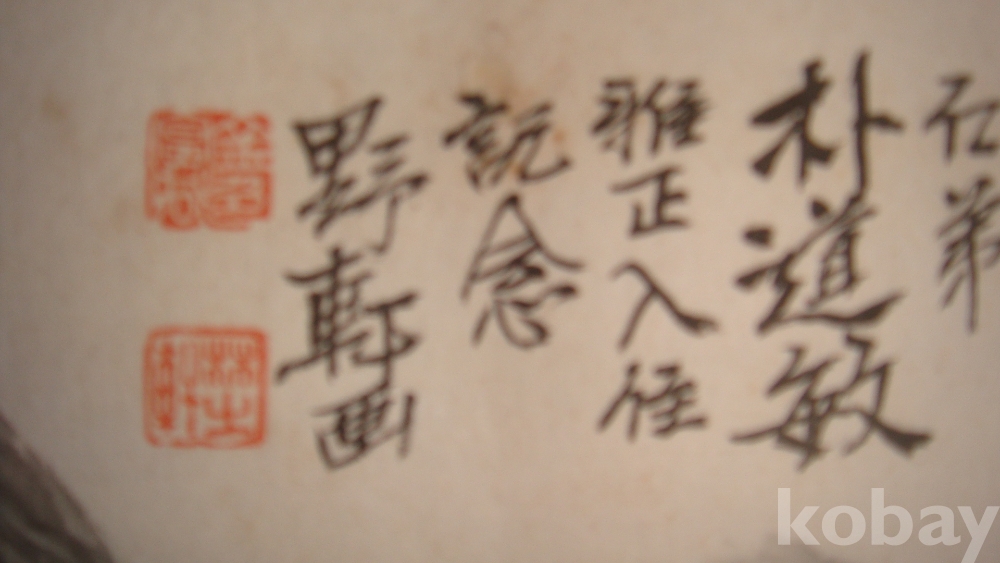 弟
朴道敏
雅正入住
記念
野軒画
kobay